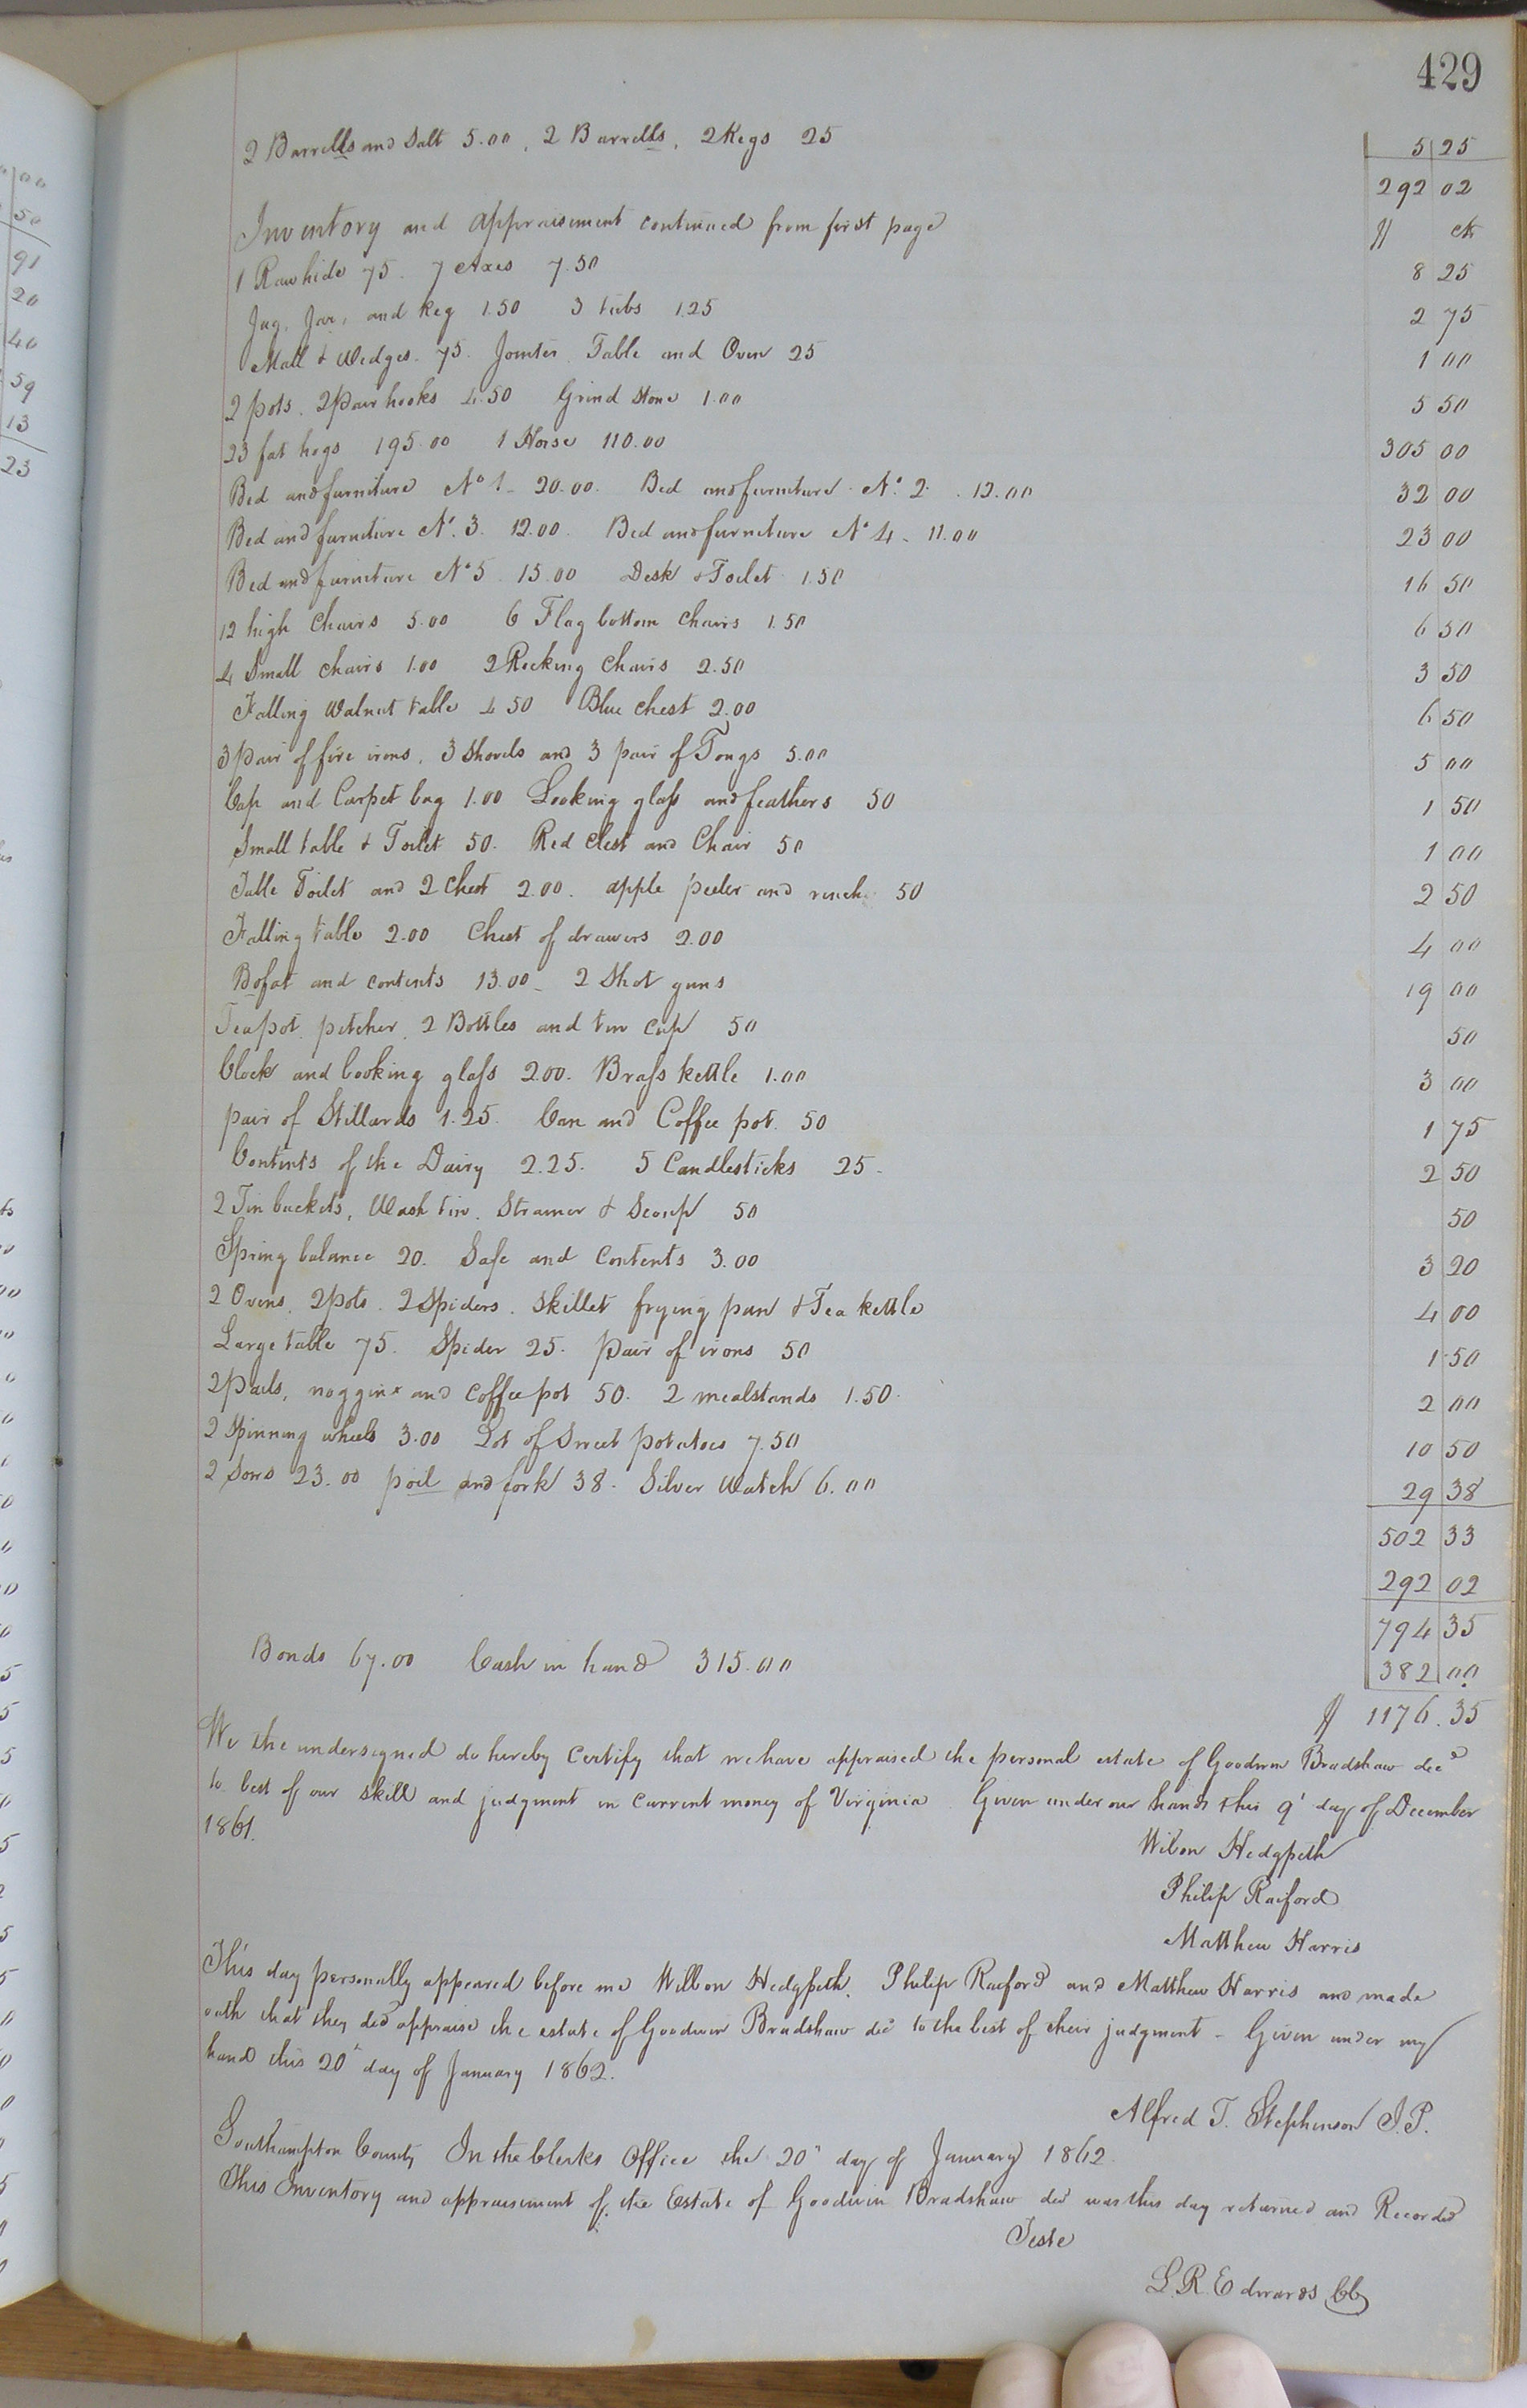 429
2 Barrells and Salt 5.00, 2 Barrells, 2 Kegs 25 5 25
292 02
Inventory and appraisement continued from first page $ cts
1 Rawhide 75. 7 Axes 7.50 8 25
Jug, Jar, and keg 1.50 3 tubs 1.25 2 75
Mall & Wedges. 75. Jointer Table and Oven 25 1 00
2 pots. 2 pair hooks 4.50 Grind Stone 1.00 5 50
23 fat hogs 195.00 1 Horse 110.00 305 00
Bed and furniture No 1 - 20.00. Bed and furniture No. 2. 12.00 32 00
Bed and furniture No. 3. 12.00. Bed and furniture No 4 - 11.00 23 00
Bed and furniture No 5. 15.00 Desk & Toilet 1.50 16 50
12 high Chairs 5.00 6 Flag bottom Chairs 1.50 6 50
4 Small chairs 1.00 2 Rocking Chairs 2.50 3 50
Falling Walnut table 4 50 Blue chest 2.00 6 50
3 pair of fire irons, 3 Shovels and 3 pair of Tongs 5.00 5 00
Cap and Carpet bag 1.00 Looking glass and feathers 50 1 50
Small table & Toilet 50. Red Chest and Chair 50 1 00
Table Toilet and 2 Chest 2.00. apple peeler and rench 50 2 50
Falling table 2.00 Chest of drawers 2.00 4 00
Bofat and contents 13.00 - 2 Shot guns 19 00
Teapot, pitcher, 2 Bottles and tin cup 50 50
Clock and looking glass 2.00. Brass kettle 1.00 3 00
pair of Stillards 1.25. Can and Coffee pot. 50 1 75
Contents of the Dairy 2.25. 5 Candlesticks 25. 2 50
2 Tin buckets, Wash tin. Strainer & Scoup 50 50
Spring balance 20. Safe and Contents 3.00 3 20
2 Ovens, 2 pots. 2 Spiders. Skillet frying pan & Tea kettle 4 00
Large table 75. Spider 25. pair of irons 50 1 50
2 pails, noggin and coffee pot 50. 2 mealstands 1.50. 2 00
2 Spinning wheels 3.00 Lot of Sweet potatoes 7.50 10 50
2 Sows 23.00 poil and fork 38. Silver Watch 6.00 29 38
502 33
292 02
794 35
Bonds 67.00 Cash in hand 315.00 382 00
$ 1176.35
We the undersigned do hereby Certify that we have appraised the personal estate of Goodwin Bradshaw decd
to best of our skill and judgment in current money of Virginia Given under our hands this 9' day of December
1861.
Wilson Hedgpeth
Philip Raiford
Matthew Harris
This day personally appeared before me Willson Hedgpeth, Philip Raiford and Matthew Harris and made
oath that they did appraise the estate of Goodwin Bradshaw decd to the best of their judgment - Given under my
hand this 20th day of January 1862.
Alfred T. Stephenson J.P.
Southampton County In the Clerks Office the 20th day of January 1862
This Inventory and appraisement of the Estate of Goodwin Bradshaw decd was this day returned and Recorded
Teste
L. R. Edwards CC